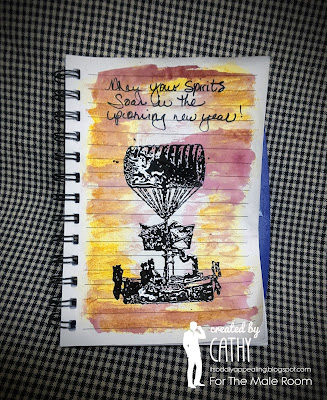 May your Spirits
Soar in the
upcoming new year!
created by
CATHY
itsoddlyappealing.blogspot.com
For The Male Room